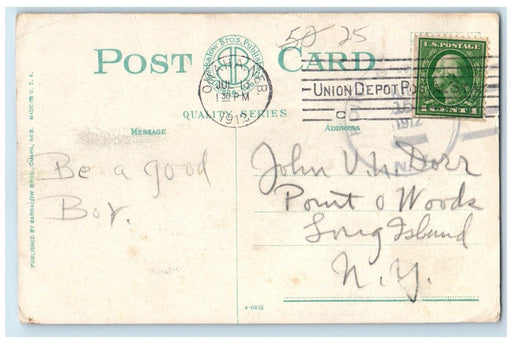 50 25
POST CARD
Barkalow Bros. Publishers
BB
QUALITY SERIES
OMAHA, NEB.
JUL 13
1 30 PM
1912
UNION DEPOT
U.S. POSTAGE
1 CENT 1
1912
N.Y.
MESSAGE
ADDRESS
Be a good
Boy.
John V. N. Dorr
Point o Woods
Long Island
N. Y.
A-5825
PUBLISHED BY BARKALOW BROS., OMAHA, NEB. MADE IN U.S.A.